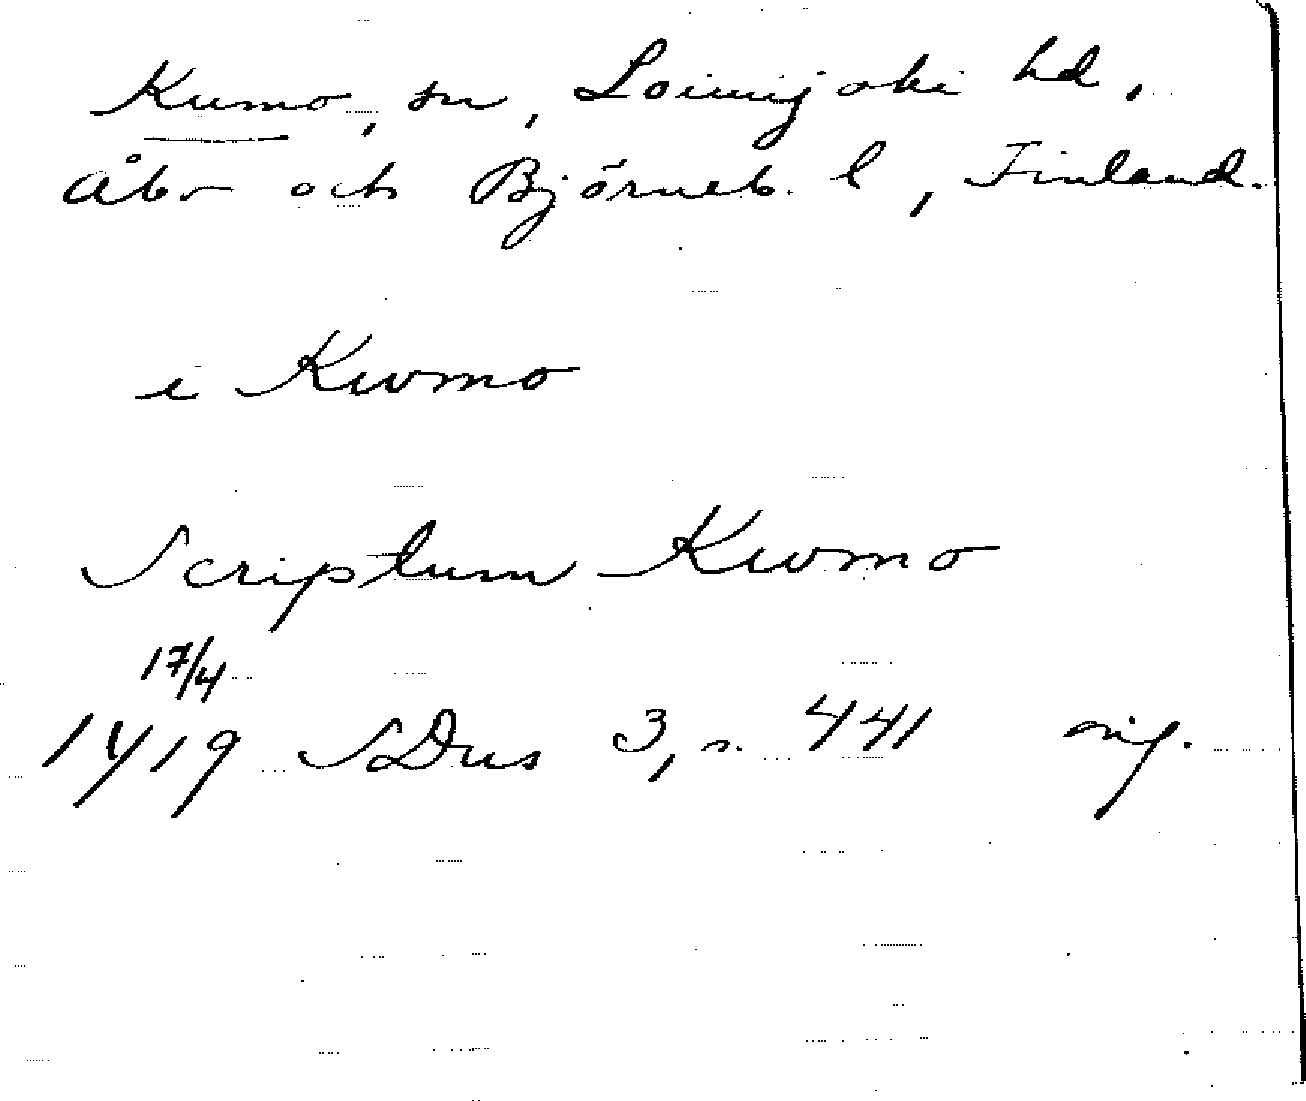 Kumo, sn, Loimijoki hd,
Åbo och Björneb. l, Finland.
i Kwmo
Scriptum Kwmo
17/4
1419 SDns 3, s. 441 orig.